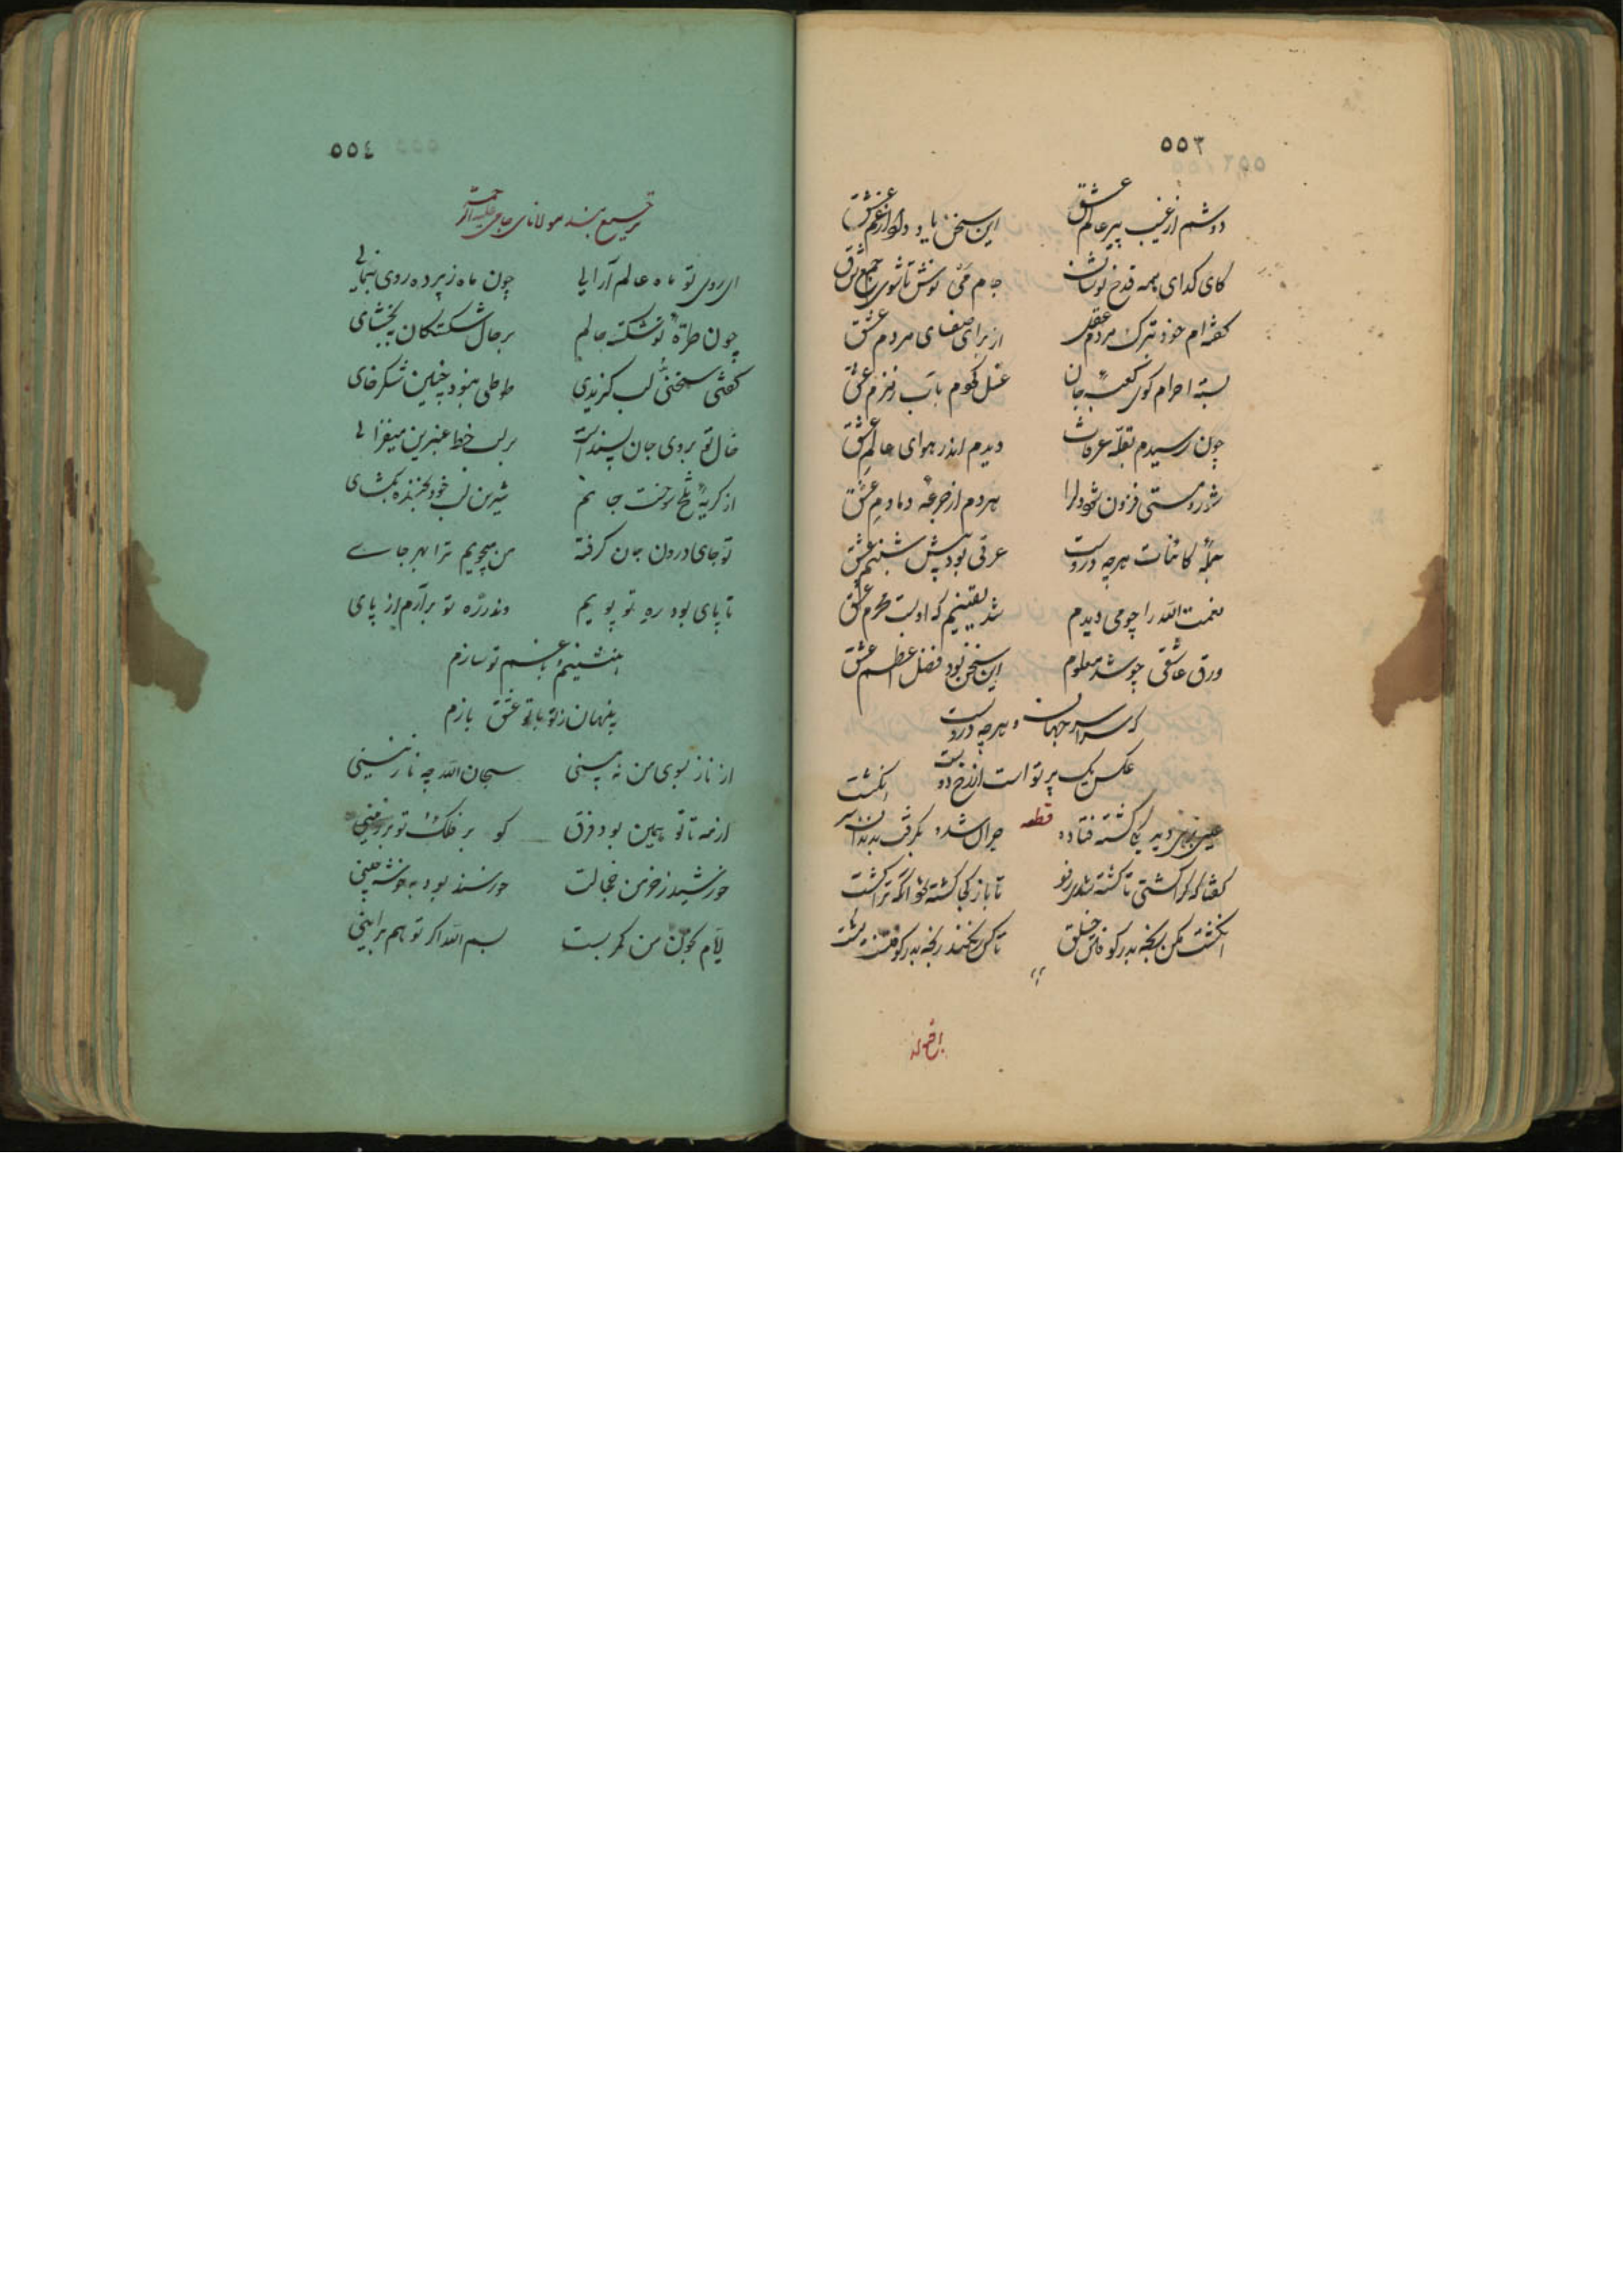 ٥٥٣
دوشم از غیب پیر عالم عشق این سخن یاد داد از غم عشق
کای کدای همه قدح نوشان جام می نوش تا شوی جمع شرق
کفته ام خود بترک مردم عقل از برای صفای مردم عشق
بسته احرام کوی کعبه جان غسل کردم بآب زمزم عشق
چون رسیدم بقلّه عرفات دیدم اندر هوای عالم عشق
شور و مستی فزون شود دلرا هردم از جرعهٔ دمادم عشق
جملهٔ کائنات هرچه دروست عرقی بود پیش شبنم عشق
نعمت الله را چو می دیدم شد یقینم که اوست محرم عشق
ورق عاشقی چو شد معلوم این سخن بود فضل اعظم عشق
که سراسر جهان و هرچه دروست
عکس یک پرتو است از رخ دوست
قطعه
عیسی برهی دید یکی کشته فتاده حیران شد و بکرفت بدندان سر انکشت
کفتا که کرا کشتی تا کشته شدی زار تا باز کجا کشته شود آنکه ترا کشت
انکشت مکن رنجه بدر کوفتن خلق تا کس نکند رنجه بدر کوفتنت مشت
٥٥٤
ترجیع بند مولانای جامی علیه الرحمة
ای روی تو ماه عالم آرای چون ماه ز پرده روی بنمای
چون طرّهٔ تو شکسته حالم بر حال شکستکان ببخشای
کفتی سخنی و لب کزیدی طوطی نبود چنین شکر خای
خال تو بروی جان پسند است بر لب خط عنبرین میفزای
از کریهٔ تلخ سوخت جانم شیرین لب خود بخنده بکشای
تو جای درون جان کرفته من میجویم ترا بهر جای
تا پای بود ره تو پویم وندر ره تو برآرم از پای
بنشینم و با غم تو سازم
پنهان ز تو با تو عشق بازم
از ناز بسوی من نه بینی سبحان الله چه نازنینی
از مه تا تو همین بود فرق کو بر فلک و تو بر زمینی
خورشید ز خرمن جمالت خورسند بود به خوشه چینی
بسم الله اکر تو هم برایینی